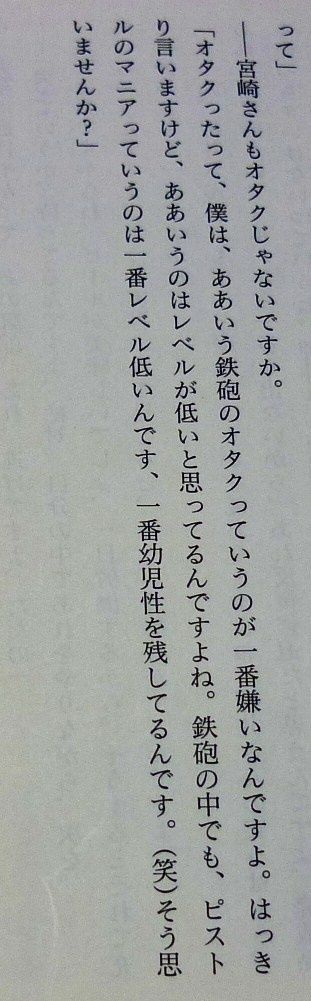 って」
――宮崎さんもオタクじゃないですか。
「オタクったって、僕は、ああいう鉄砲のオタクっていうのが一番嫌いなんですよ。はっき
り言いますけど、ああいうのはレベルが低いと思ってるんですよね。鉄砲の中でも、ピスト
ルのマニアっていうのは一番レベル低いんです、一番幼児性を残してるんです。(笑)そう思
いませんか?」